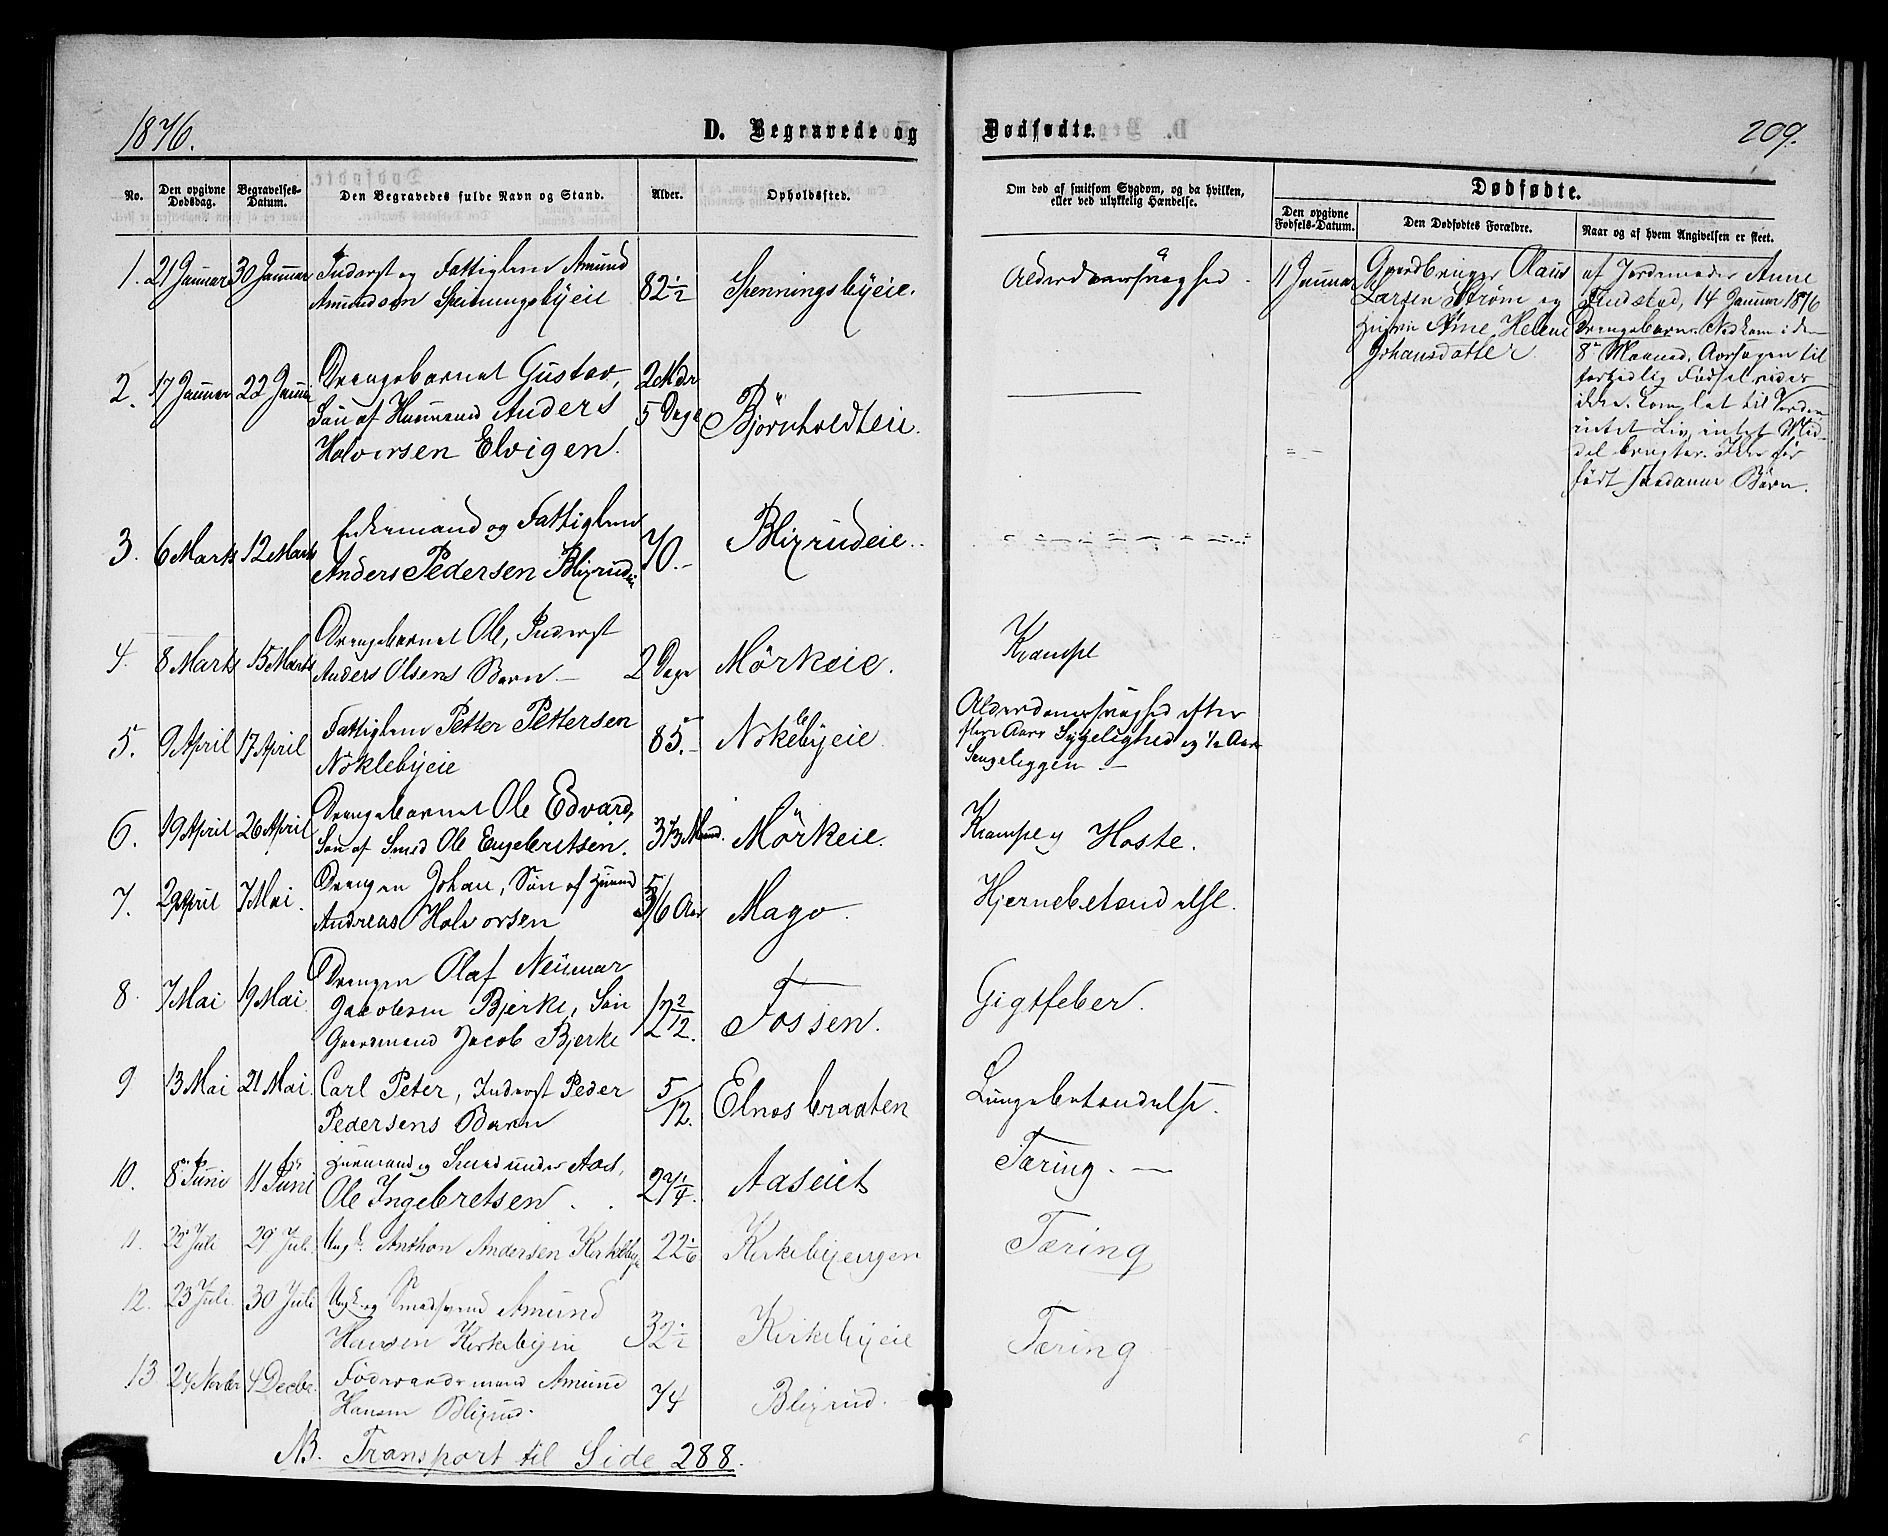 1876.
D. Begravede og Dødfødte.
209.
No. Den opgivne Dødsdag. Begravelses-Datum. Den Begravedes fulde Navn og Stand. Alder. Opholdssted. Om død af smitsom Sygdom, og da hvilken, eller ved ulykkelig Hændelse.
Dødfødte.
Den opgivne Fødsels-Datum. Den Dødfødtes Forældre. Naar og af hvem Angivelsen er skeet.
1. 21 Januar 30 Januar Inderst og Fattiglem Amund
Amundsen Spenningsbyeie 82 1/2 Spenningsbyeie. Alderdomssvaghed.
11 Januar Gaardbruger Olaus
Larsen Strøm og
Hustru Anne Helene
Johansdatter
af Jordemoder Anne
Findstad, 14 Januar 1876
Drengebarn. Nedkom i den
8de Maaned. Aarsagen til
fortidlig Fødsel vides
ikke.
intet Liv, intet Mid-
del brugtes. Ikke før
født saadanne Børn.
2. 17 Januar 22 Januar Drengebarnet Gustav,
Søn af Huusmand Anders
Halvorsen Elvigen. 2 Mdr 5 Dage Bjørnholdteie.
3. 6 Marts 12 Marts Enkemand og Fattiglem
Anders Pedersen Blixrudeie 70.- Blixrudeie.
4. 8 Marts 15 Marts Drengebarnet Ole, Inderst
Anders Olsens Barn.- 2 Dage Mörkeie. Krampe
5. 9 April 17 April Fattiglem Petter Pettersen
Nöklebyeie 85.- Nöklebyeie. Alderdomssvaghed efter
flere Aars Sygelighed og 1/2 Aars
Sengeliggen.-
6. 19 April 26 April Drengebarnet Ole Edvard,
Søn af Smed Ole Engebretsen. 3 1/3 Maaned. Mörkeie. Krampe og Hoste.
7. 29 April 7 Mai. Drengen Johan, Søn af Huusmd
Andreas Halvorsen 5/6 Aar Mago. Hjernebetændelse.
8. 7 Mai 19 Mai. Drengen Olaf Neumar
Jacobsen Bjerke, Søn
Gaardmand Jacob Bjerke 12 2/12. Fossen. Gigtfeber.
9 13 Mai 21 Mai. Carl Peter, Inderst Peder
Pedersens Barn 5/12. Elnesbraaten Lungebetændelse.
10. 8 Juni 11 Juni Huusmand og Smed under Aas,
Ole Ingebretsen. 27 1/4. Aaseiet Tæring.-
11. 22 Juli 29 Juli Ungk. Anthon Andersen Kirkeby 22 1/6 Kirkebyengen Tæring
12. 23 Juli. 30 Juli Ungk. og Smedsvend Amund
Hansen Kirkebyeie 32 1/2 Kirkebyeie Tæring
13 24 Novbr 4 Decbr. Føderaadsmand Amund
Hansen Blixrud. 74 Blixrud.
NB. Transport til Side 288.